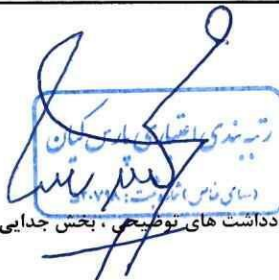 رتبه بندی اعتباری پارس کیان
(سهامی خاص)
دداشت های توضیحی ، بخش جدایی